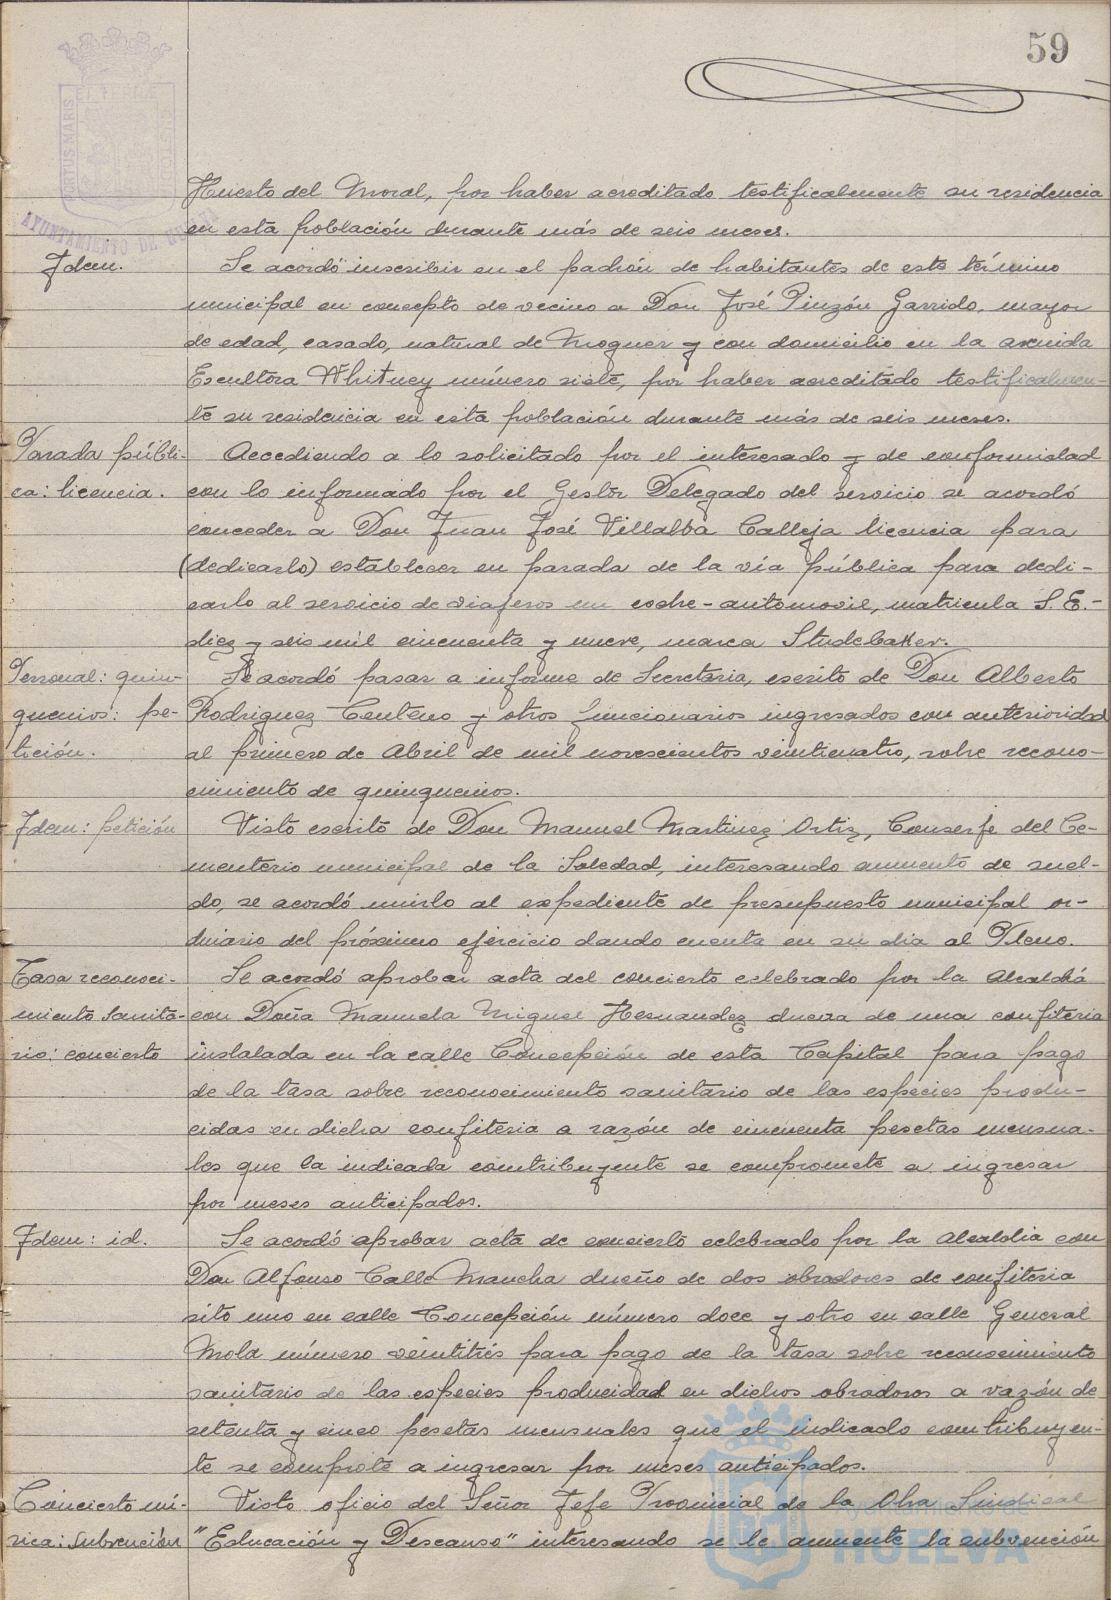 59
PORTUS MARIS ET TERRE CUSTODIA
AYUNTAMIENTO DE HUELVA
Huerto del Moral, por haber acreditado testificalmente su residencia
en esta población durante más de seis meses.
Idem.
Se acordó inscribir en el padrón de habitantes de este término
municipal en concepto de vecino a Don José Pinzón Garrido, mayor
de edad, casado, natural de Moguer y con domicilio en la avenida
Escultora Whitney número siete, por haber acreditado testificalmen-
te su residencia en esta población durante más de seis meses.
Parada públi-
ca: licencia.
Accediendo a lo solicitado por el interesado y de conformidad
con lo informado por el Gestor Delegado del servicio se acordó
conceder a Don Juan José Villalba Calleja licencia para
(dedicarlo) establecer en parada de la vía pública para dedi-
carlo al servicio de viajeros un coche-automovil, matricula S.E.-
diez y seis mil cincuenta y nueve, marca Studebaker.
Personal: quin-
quenios: pe-
tición.
Se acordó pasar a informe de Secretaria, escrito de Don Alberto
Rodriguez Centeno y otros funcionarios ingresados con anterioridad
al primero de Abril de mil novescientos veinticuatro, sobre recono-
cimiento de quinquenios.
Idem: petición
Visto escrito de Don Manuel Martinez Ortiz, Conserje del Ce-
menterio municipal de la Soledad, interesando aumento de suel-
do, se acordó unirlo al expediente de presupuesto municipal or-
dinario del próximo ejercicio dando cuenta en su dia al Pleno.
Tasa reconoci-
miento Sanita-
rio: concierto
Se acordó aprobar acta del concierto celebrado por la Alcaldía
con Doña Manuela Miguel Hernandez dueña de una confiteria
instalada en la calle Concepción de esta Capital para pago
de la tasa sobre reconocimiento sanitario de las especies produ-
cidas en dicha confiteria a razón de cincuenta pesetas mensua-
les que la indicada contribuyente se compromete a ingresar
por meses anticipados.
Idem: id.
Se acordó aprobar acta de concierto celebrado por la Alcaldia con
Don Alfonso Calle Mancha dueño de dos obradores de confiteria
sito uno en calle Concepción número doce y otro en calle General
Mola número veintitrés para pago de la tasa sobre reconocimiento
sanitario de las especies producidad en dichos obradoros a vazón de
setenta y cinco pesetas mensuales que el indicado contribuyen-
te se comprote a ingresar por meses anticipados.
Concierto mú-
sica: subvención
Visto oficio del Señor Jefe Provincial de la Obra Sindical
"Educación y Descanso" interesando se le aumente la subvención
Ayuntamiento de
HUELVA